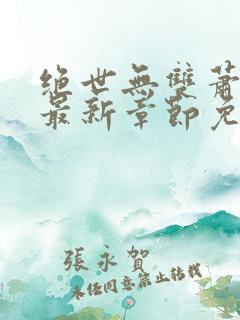 絕世無雙蕭
最新章節免
張永賀
未經同意禁止轉載